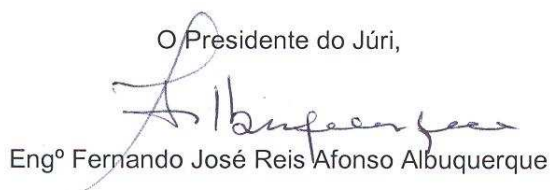 O Presidente do Júri,
Albuquerque
Engº Fernando José Reis Afonso Albuquerque